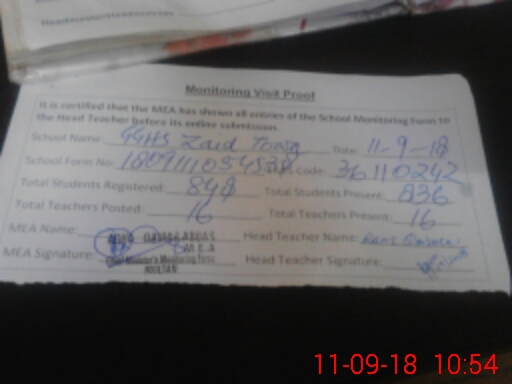 Monitoring Visit Proof
It is certified that the MEA has shown all entries of the School Monitoring Form to
the Head Teacher before its online submission.
School Name: GGHS Zaid Date: 11-9-18
School Form No: Code: 36110242
Total Students Registered: 848 Total Students Present: 836
Total Teachers Posted: 16 Total Teachers Present: 16
MEA Name: ABBAS Head Teacher Name:
M.E.A
MEA Signature: Chief Minister's Monitoring Force Head Teacher Signature:
MULTAN
11-09-18 10:54